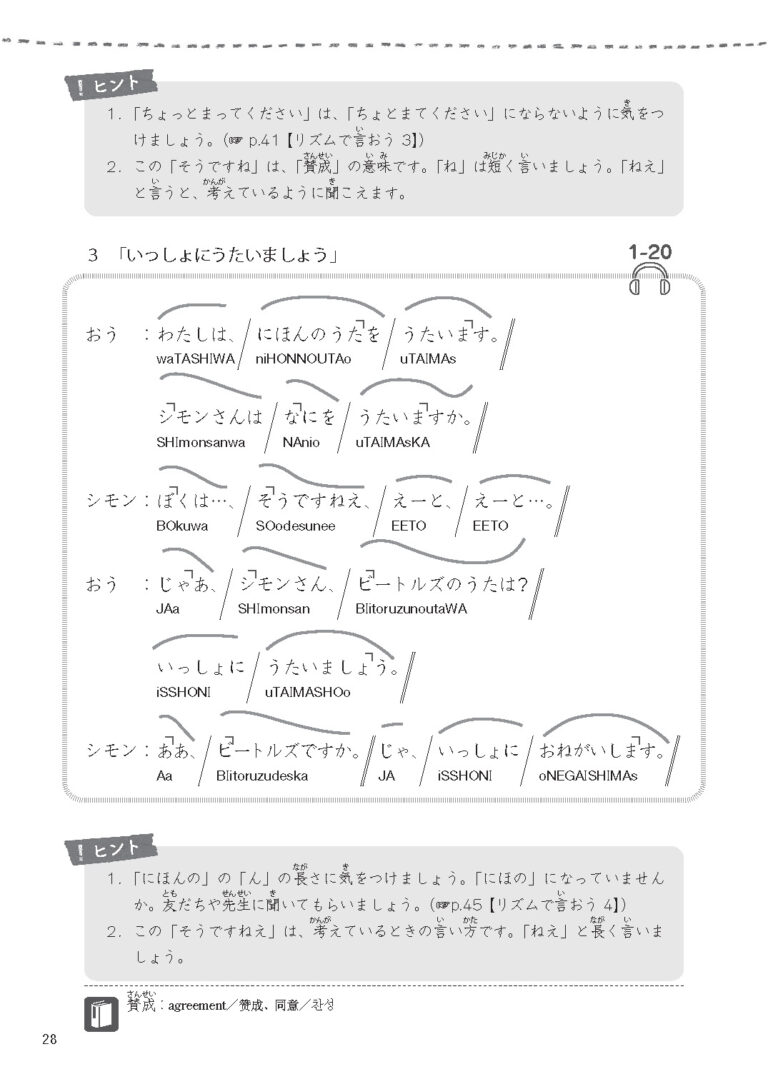 ！ヒント
1．「ちょっとまってください」は、「ちょとまてください」にならないように気をつ
けましょう。（☞ p.41【リズムで言おう 3】）
2．この「そうですね」は、「賛成」の意味です。「ね」は短く言いましょう。「ねえ」
と言うと、考えているように聞こえます。
3 「いっしょにうたいましょう」
1-20
おう ：わたしは、/ にほんのうたを / うたいます。//
waTASHIWA/ niHONNOUTAo / uTAIMAs
シモンさんは / なにを / うたいますか。//
SHImonsanwa / NAnio / uTAIMAsKA
シモン：ぼくは…、/ そうですねえ、/ えーと、/ えーと…。//
BOkuwa / SOodesunee / EETO / EETO
おう ：じゃあ、/ シモンさん、/ ビートルズのうたは？//
JAa / SHImonsan / BIitoruzunoutaWA
いっしょに / うたいましょう。//
iSSHONI / uTAIMASHOo
シモン：ああ、/ ビートルズですか。// じゃ、/ いっしょに / おねがいします。//
Aa / BIitoruzudeska / JA / iSSHONI / oNEGAISHIMAs
！ヒント
1．「にほんの」の「ん」の長さに気をつけましょう。「にほの」になっていません
か。友だちや先生に聞いてもらいましょう。（☞p.45【リズムで言おう 4】）
2．この「そうですねえ」は、考えているときの言い方です。「ねえ」と長く言いま
しょう。
賛成：agreement／赞成、同意／찬성
28